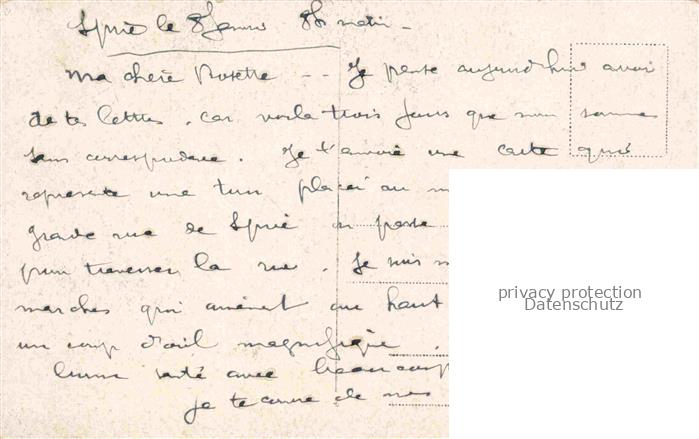 Spire le 8 Janvier 8h matin -
Ma chère Rosette -- Je pense aujourd'hui avoir
de tes lettres, car voila trois jours que nous sommes
sans correspondance. Je t'envoie une carte qui
represente une tour placé au m
grande rue de Spire on passe
pour traverser la rue. Je suis m
marches qui amènent au haut
un coup d'oeil magnifique.
bonne santé avec beaucoup
je te de
privacy protection
Datenschutz